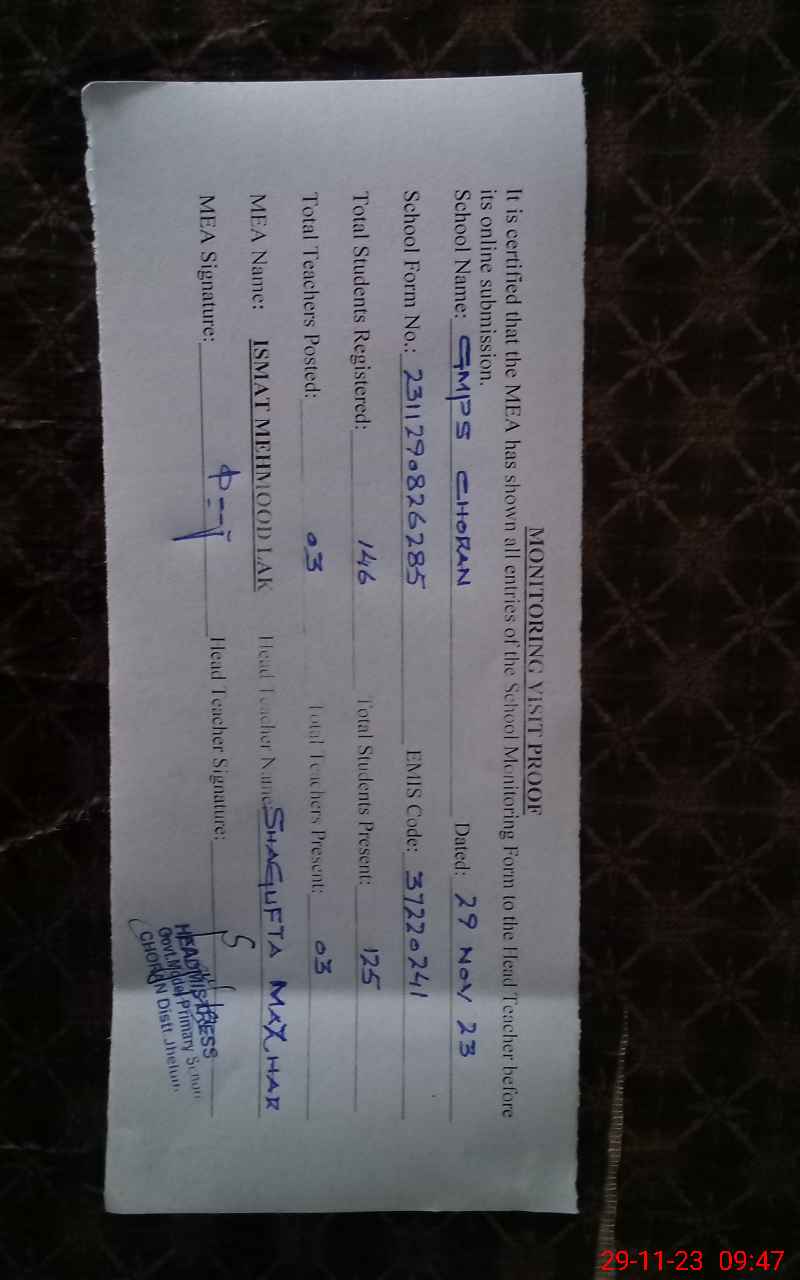 MONITORING VISIT PROOF
It is certified that the MEA has shown all entries of the School Monitoring Form to the Head Teacher before
its online submission.
School Name: GMPS CHORAN Dated: 29 NOV 23
School Form No.: 2311290826285 EMIS Code: 37220241
Total Students Registered: 146 Total Students Present: 125
Total Teachers Posted: 03 Total Teachers Present: 03
MEA Name: ISMAT MEHMOOD LAK Head Teacher Name: SHAGUFTA MAZHAR
MEA Signature: Head Teacher Signature:
HEADMISTRESS
Govt. Model Primary School
CHORAN Distt Jhelum
29-11-23 09:47